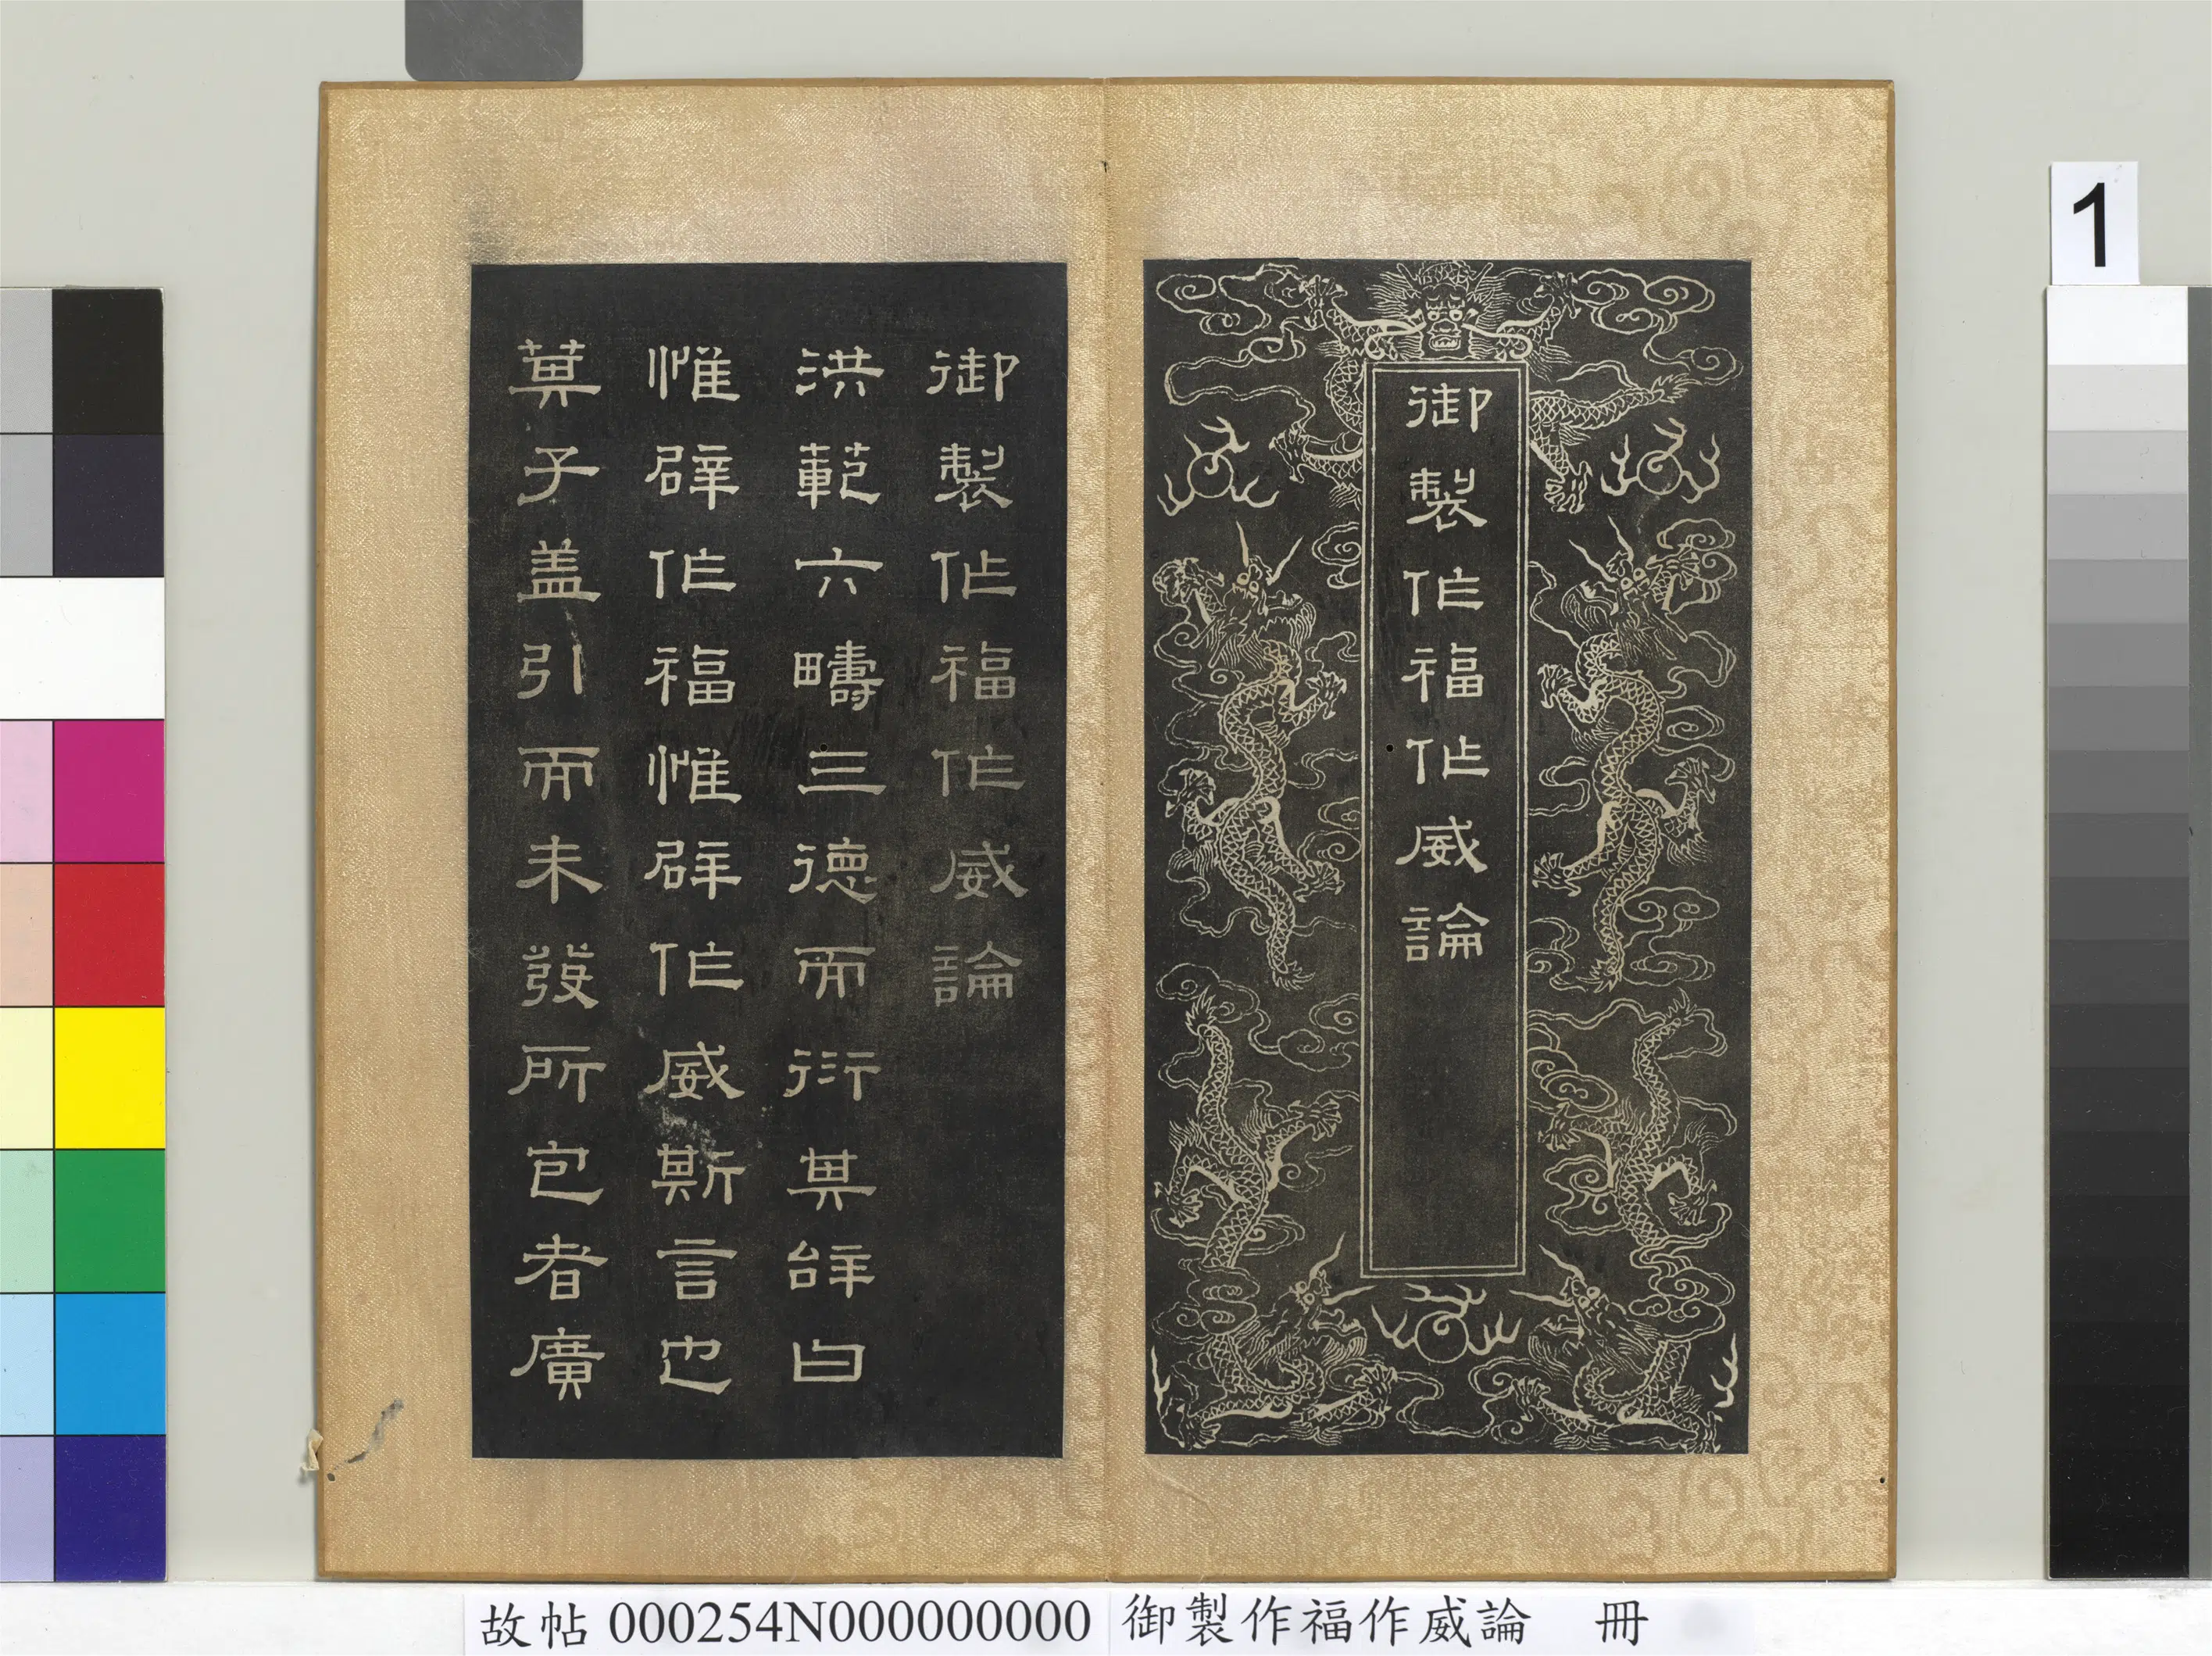 御製作福作威論
御製作福作威論
洪範六疇三德而衍其辭曰
惟辟作福惟辟作威斯言也
箕子盖引而未發所包者廣
1
故帖 000254N000000000 御製作福作威論 冊